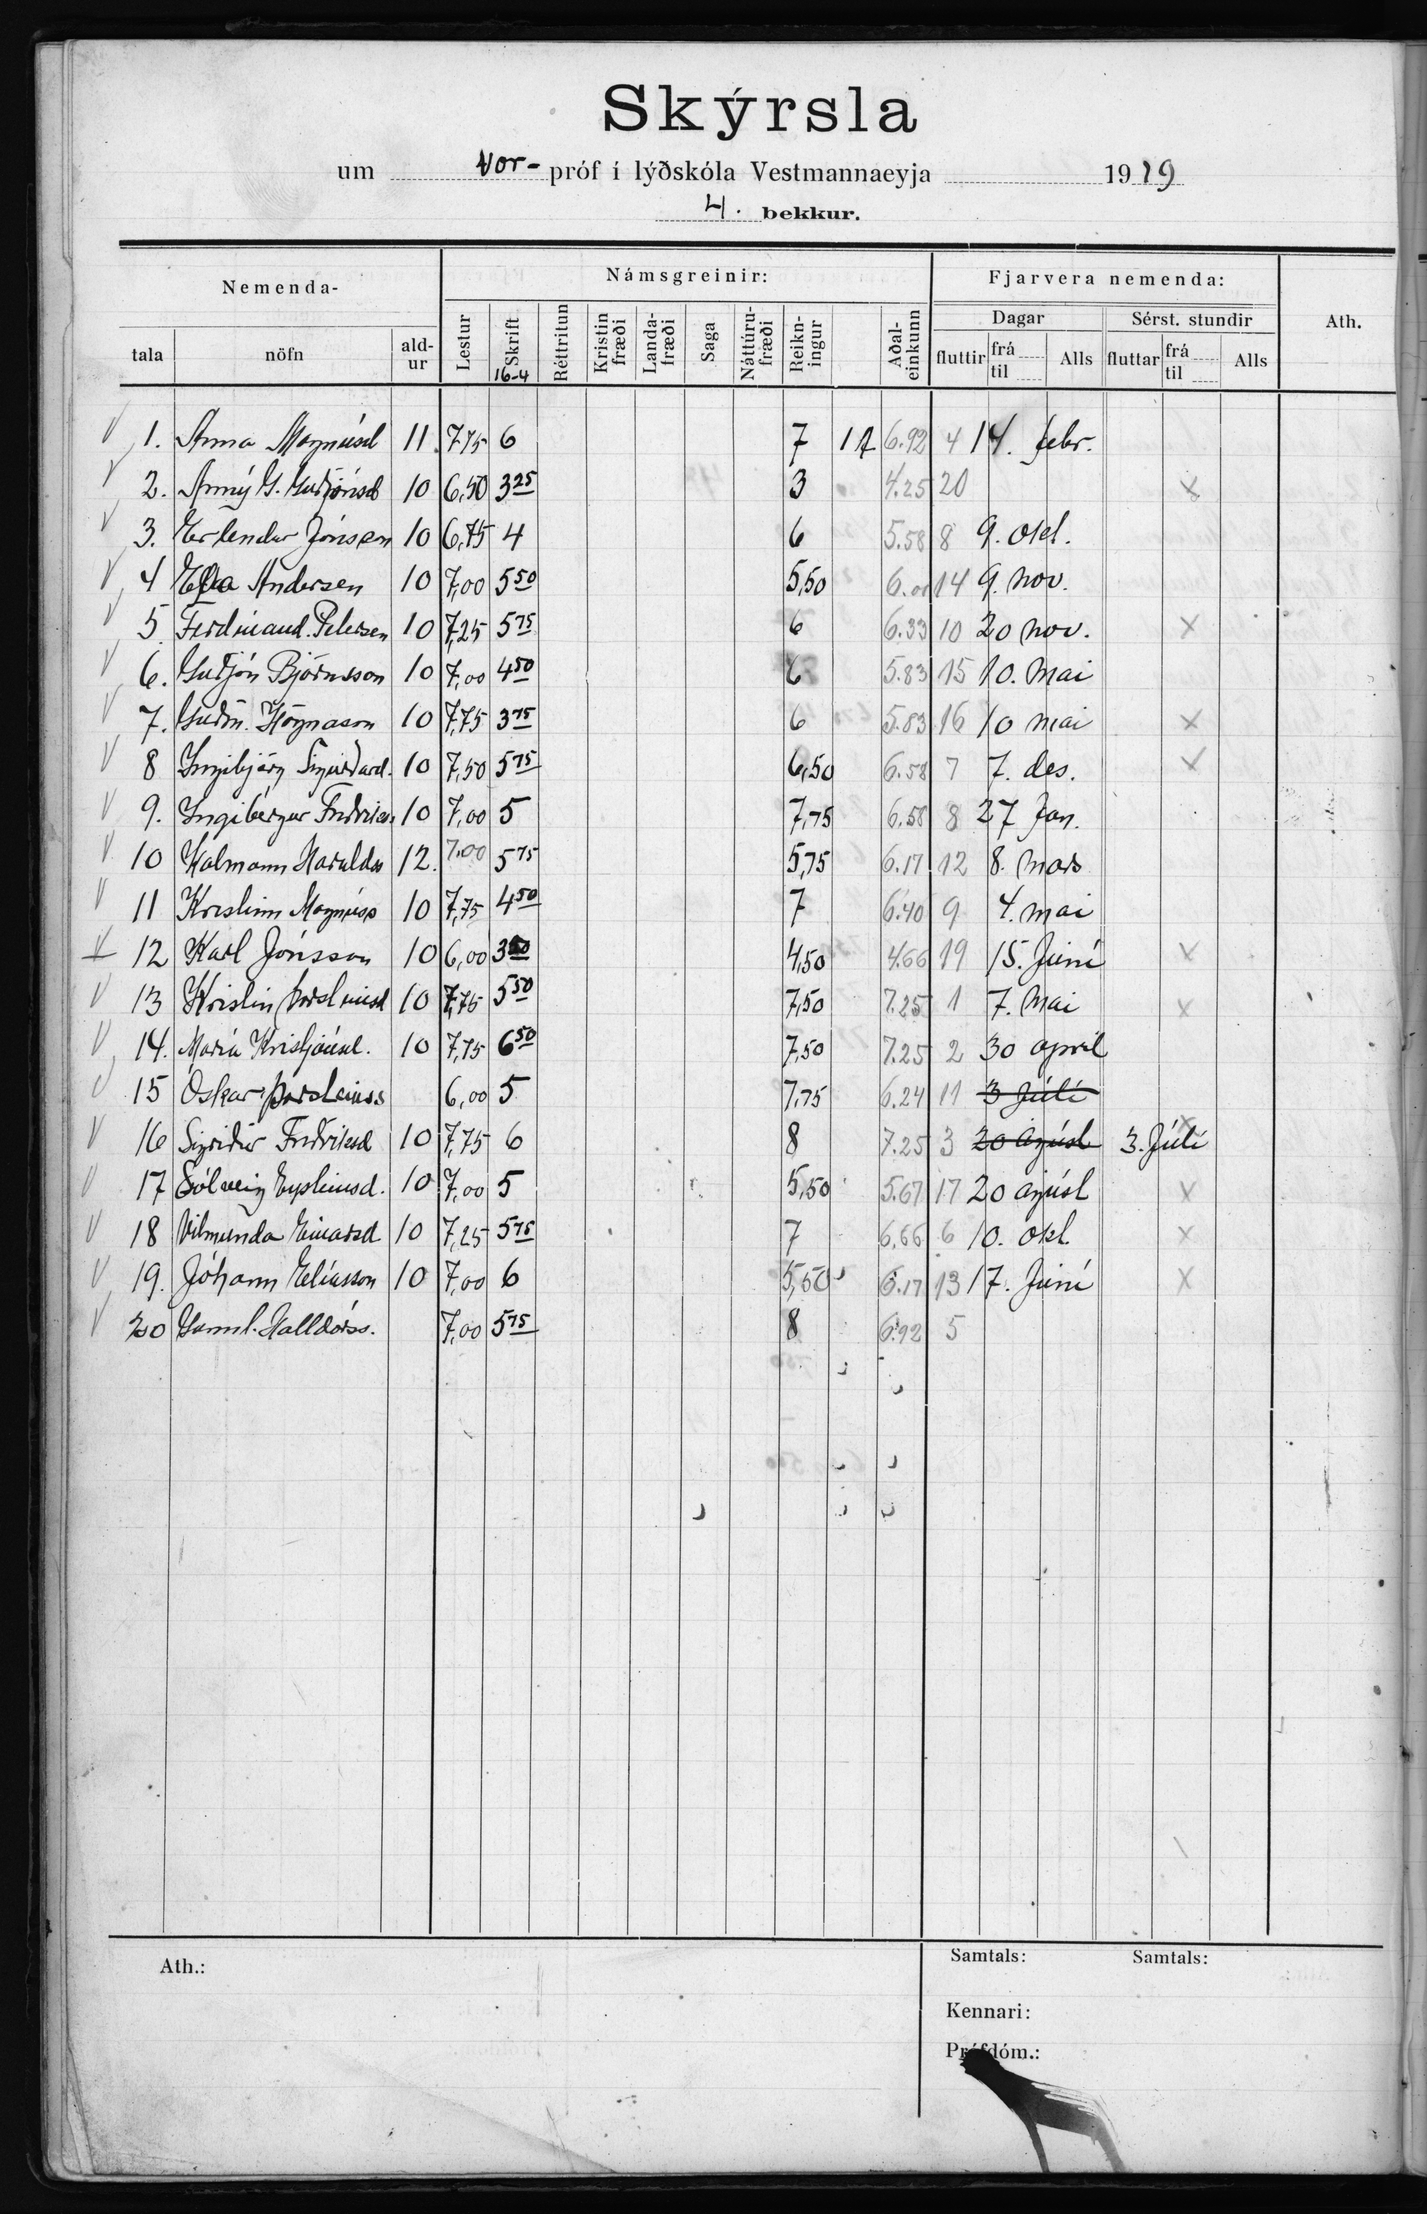 Skýrsla
um Vor- próf í lýðskóla Vestmannaeyja 1919
4. bekkur.
Nemenda- Námsgreinir: Fjarvera nemenda: Ath.
Dagar Sérst. stundir
tala nöfn ald-ur Lestur Skrift 16-4 Réttritun Kristin fræði Landa-fræði Saga Náttúru-fræði Reikn-ingur Aðal-einkunn fluttir frá til Alls fluttar frá til Alls
V 1. Anna Magnúsd 11. 7,75 6 7 1A 6.92 4 14. febr.
V 2. Anný G. Guðjónsd 10 6,50 3 25 3 4.25 20 x
V 3. Erlendur Jónsson 10 6,75 4 6 5.58 8 9. okt.
V 4 Ella Andersen 10 7,00 5 50 5,50 6.00 14 9. nov.
V 5. Ferdinand. Petersen 10 7,25 5 75 6 6.33 10 20 nov. x
V 6. Guðjón Björnsson 10 7,00 4 50 6 5.83 15 10. mai
V 7. Guðm. Högnason 10 7,75 3 75 6 5.83 16 10 mai x
V 8 Ingibjörg Sigurðard. 10 7,50 5 75 6,50 6.58 7 7. des. x
V 9. Ingibergur Friðrikss. 10 7,00 5 7,75 6,58 8 27 Jan.
V 10 Kalmann Haraldss 12. 7.00 5 75 5,75 6.17 12 8. mars
V 11 Kristinn Magnúss 10 7,75 4 50 7 6.40 9 4. mai
12 Karl Jónsson 10 6,00 3 50 4,50 4.66 19 15. Júní x
V 13 Kristín Þorsteinsd 10 7,75 5 50 7,50 7.25 1 7. Mai x
V 14. María Kristjánsd. 10 7,75 6 50 7,50 7.25 2 30 apríl
V 15 Óskar Þorsteinss 6,00 5 7,75 6.24 11 3 Júlí
V 16 Sigríður Friðriksd 10 7,75 6 8 7.25 3 20 agúst 3. Júlí x
V 17 Sólveig Eysteinsd. 10 7,00 5 5,50 5.67 17 20 agúst x
V 18 Vilmunda Einarsd 10 7,25 5 75 7 6,66 6 10. okt. x
V 19. Jóhann Elíasson 10 7,00 6 5,50 6.17 13 17. Júní x
V 20 Gunnl. Halldórss. 7,00 5 75 8 6.92 5
Ath.: Samtals: Samtals:
Kennari:
Prófdóm.: